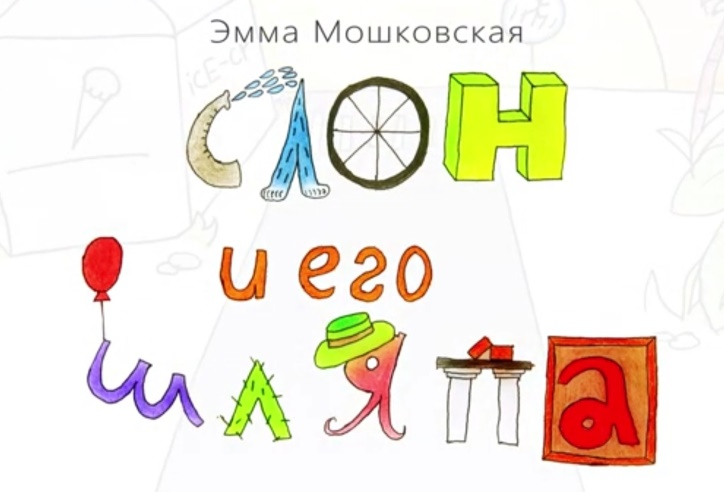 Эмма Мошковская
слон
и его
шляпа
ICE-CR